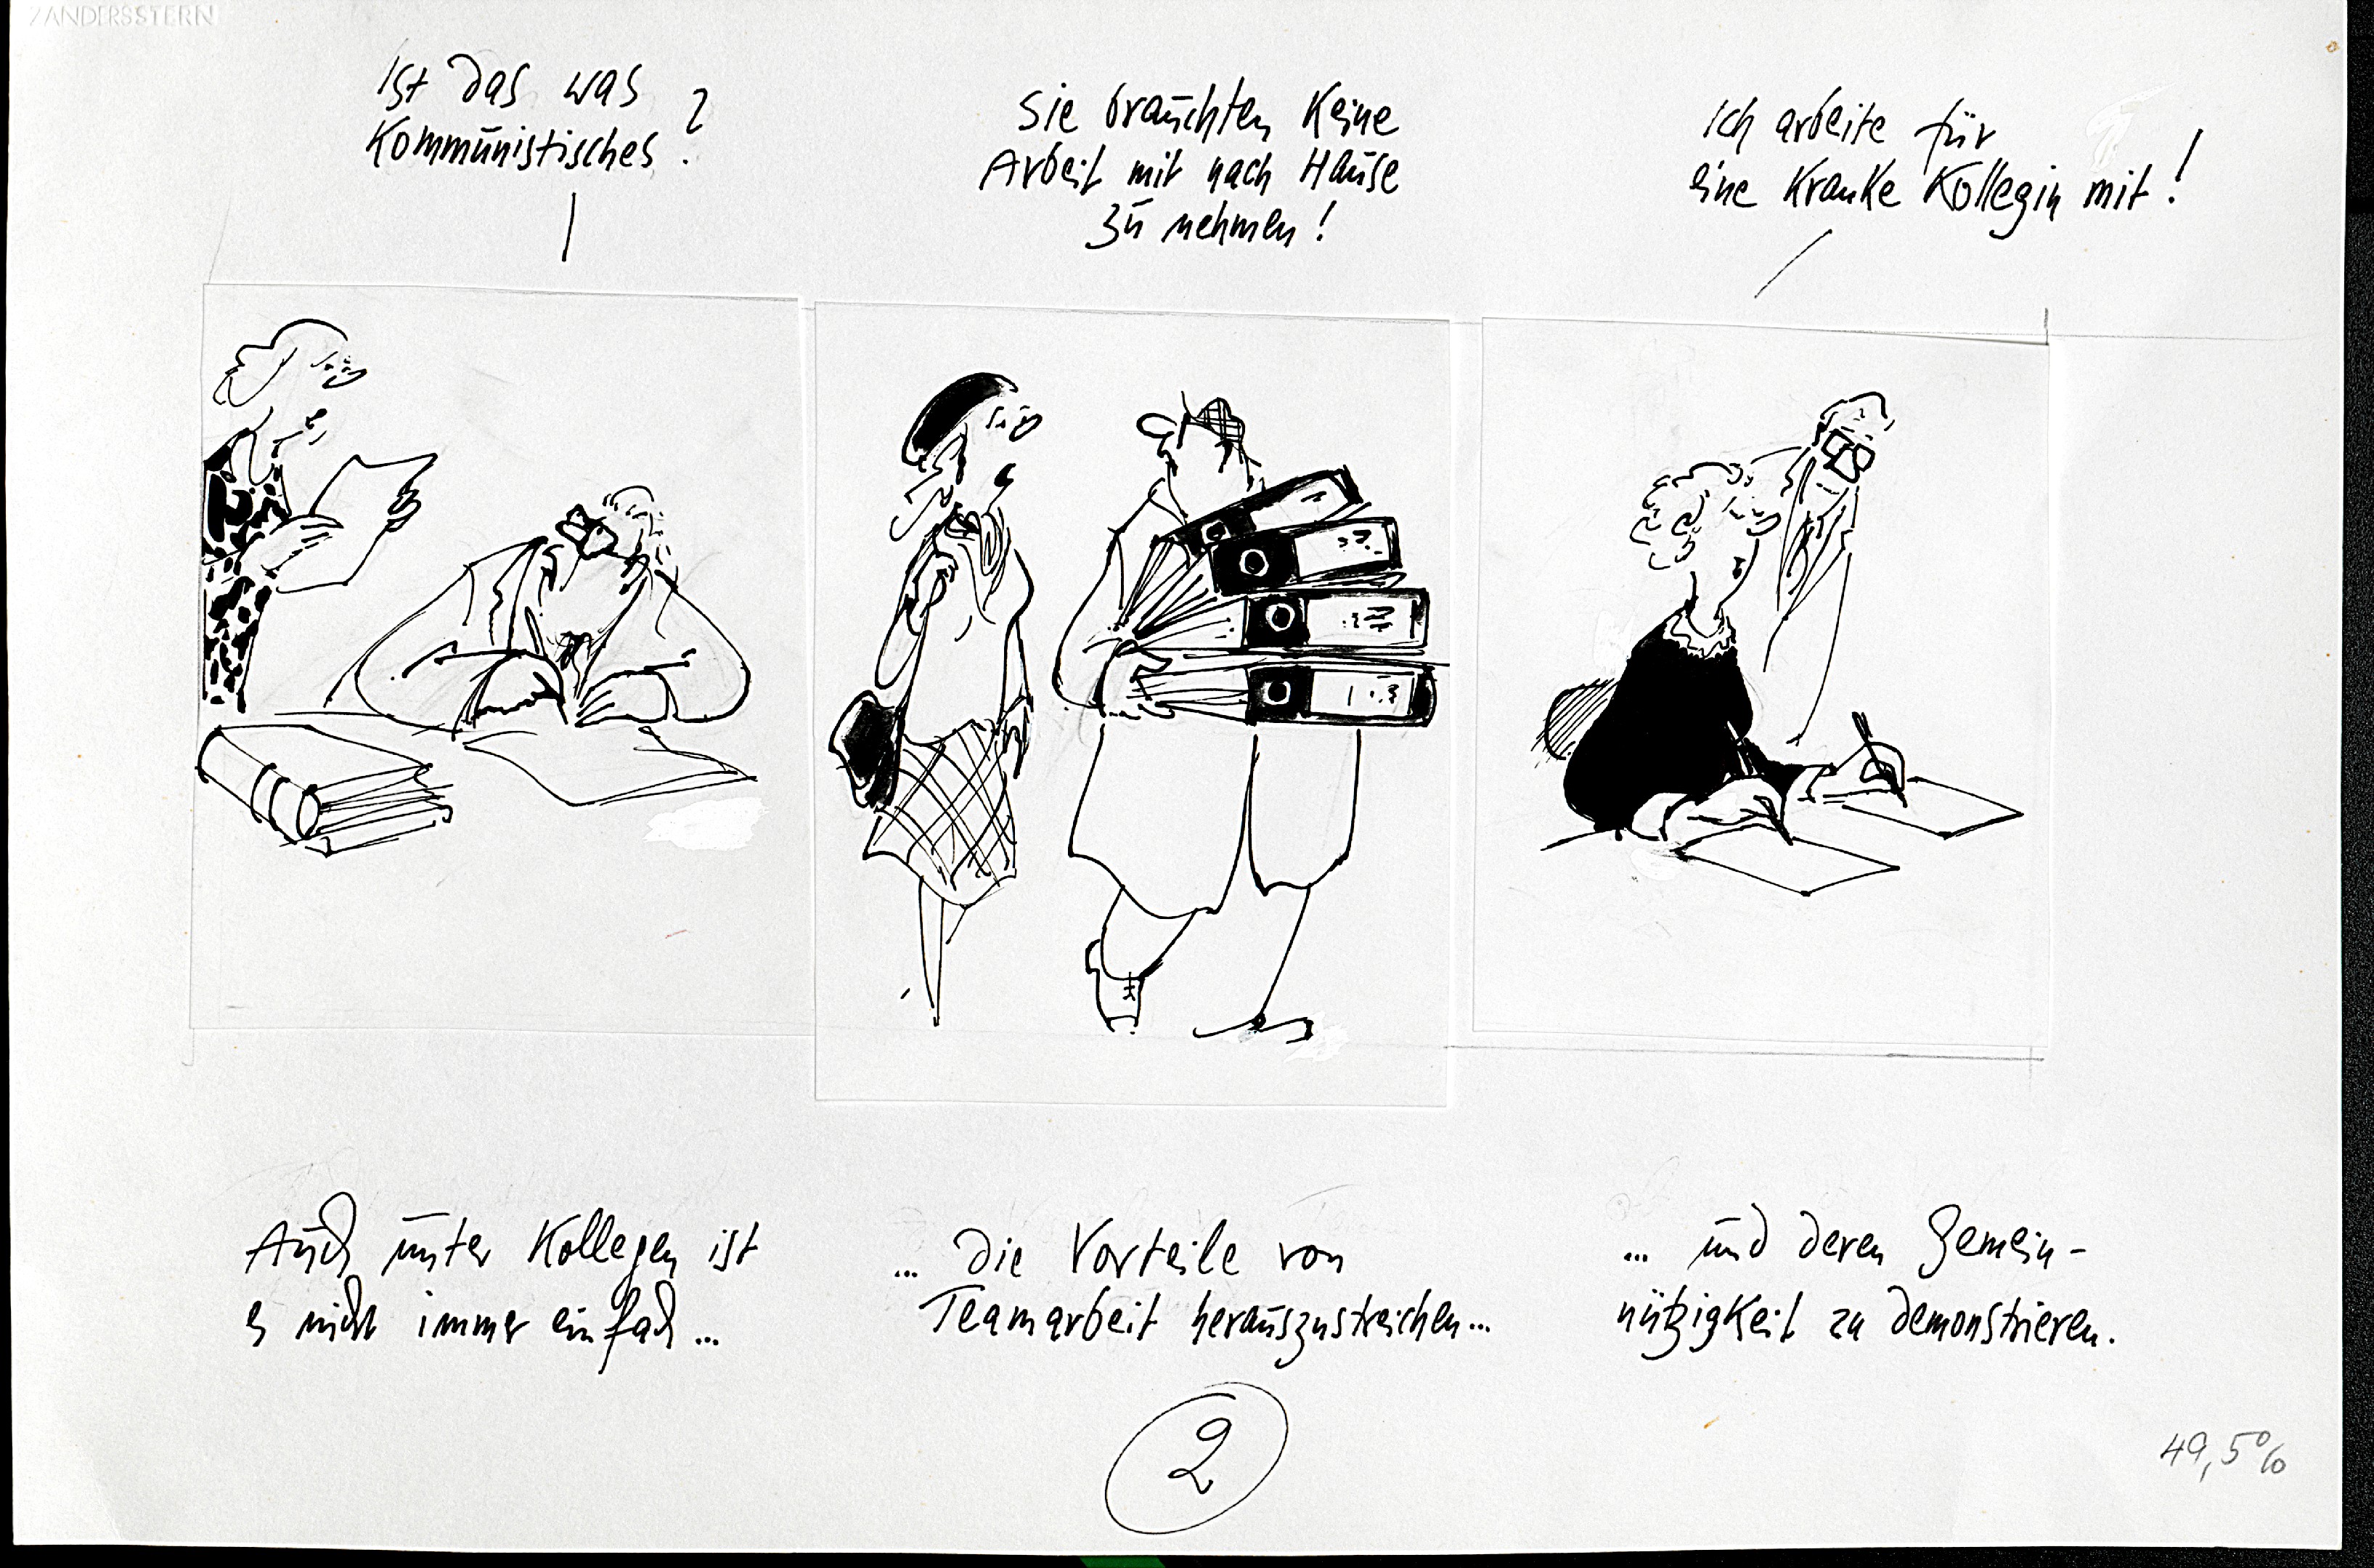 ZANDERSSTERN
Ist das was
Kommunistisches?
Sie brauchten keine
Arbeit mit nach Hause
zu nehmen!
Ich arbeite für
eine kranke Kollegin mit!
Auch unter Kollegen ist
es nicht immer einfach...
... die Vorteile von
Teamarbeit herauszustreichen...
... und deren Gemein-
nützigkeit zu demonstrieren.
2
49,5%